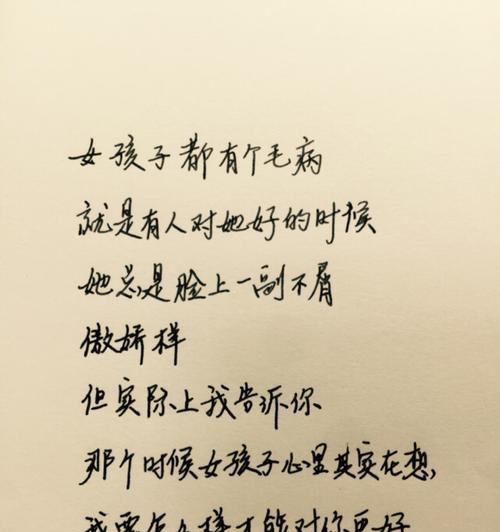 女孩子都有个毛病
就是有人对她好的时候
她总是脸上一副不屑
傲娇样
但实际上我告诉你
那个时候女孩子心里其实在想,
我要怎么样才能对你更好